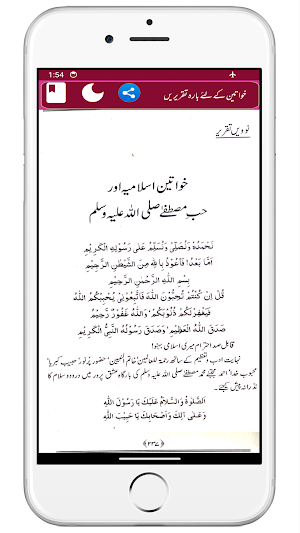 1:54
خواتین کے لئے بارہ تقریریں
نوویں تقریر
خواتین اسلامیہ اور
حبِ مصطفےٰ صلی اللہ علیہ وسلم
نَحْمَدُهٗ وَنُصَلِّیْ وَنُسَلِّمُ عَلٰی رَسُوْلِهِ الْكَرِیْمِ
اَمَّا بَعْدُ! فَاَعُوْذُ بِاللّٰهِ مِنَ الشَّیْطٰنِ الرَّجِیْمِ
بِسْمِ اللّٰهِ الرَّحْمٰنِ الرَّحِیْمِ
قُلْ اِنْ كُنْتُمْ تُحِبُّوْنَ اللّٰهَ فَاتَّبِعُوْنِیْ یُحْبِبْكُمُ اللّٰهُ
وَیَغْفِرْلَكُمْ ذُنُوْبَكُمْ، وَاللّٰهُ غَفُوْرٌ رَّحِیْمٌ
صَدَقَ اللّٰهُ الْعَظِیْمُ، وَصَدَقَ رَسُوْلُهُ النَّبِیُّ الْكَرِیْمُ
قابل صد احترام میری اسلامی بہنو!
نہایت ادب و تعظیم کے ساتھ رحمۃ للعالمین، خاتم النبیین، حضور پرنور، حبیب کبریا،
محبوب خدا، احمد مجتبیٰ محمد مصطفےٰ صلی اللہ علیہ وسلم کی بارگاہ عشق پرور میں درود و سلام کا
نذرانہ پیش کیجئے۔
اَلصَّلٰوةُ وَالسَّلَامُ عَلَیْكَ یَا رَسُوْلَ اللّٰهِ
وَعَلٰی اٰلِكَ وَاَصْحَابِكَ یَا حَبِیْبَ اللّٰهِ
﴿۲۳۷﴾